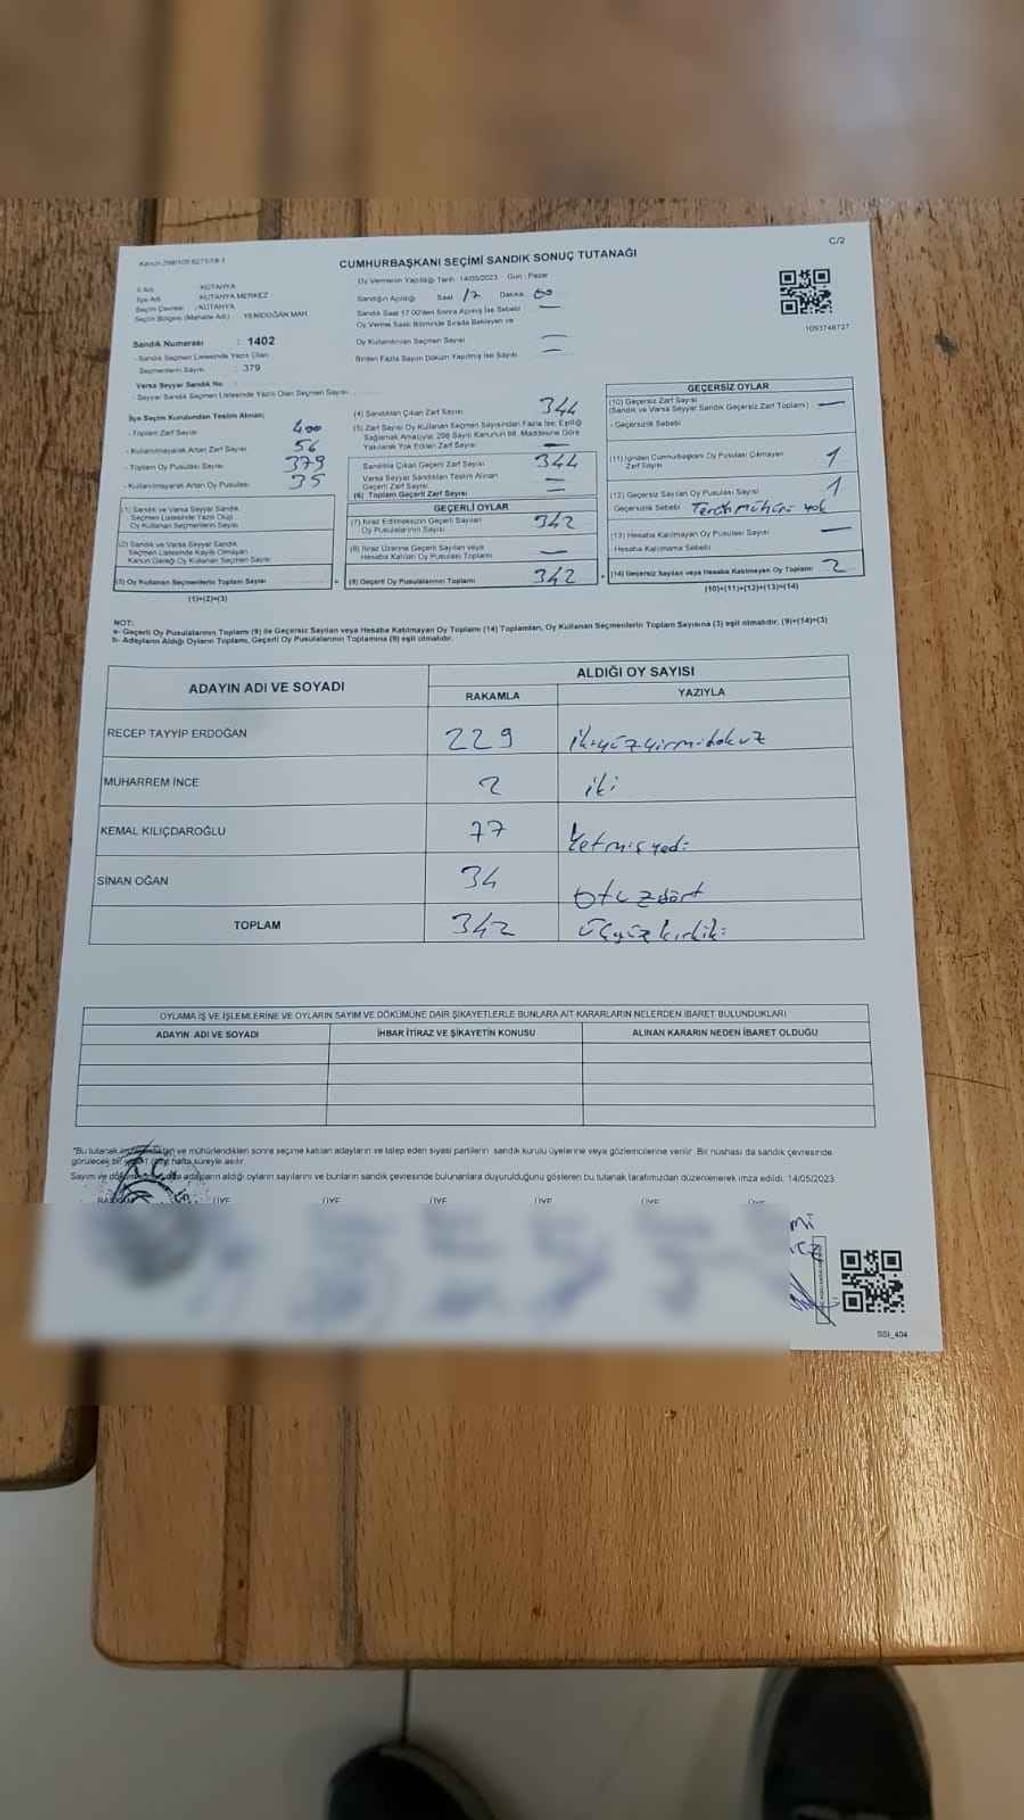 C/2
CUMHURBAŞKANI SEÇİMİ SANDIK SONUÇ TUTANAĞI
Oy Vermenin Yapıldığı Tarih : 14/05/2023 Gün : Pazar
İl Adı : KÜTAHYA
İlçe Adı : KÜTAHYA MERKEZ
Seçim Çevresi : KÜTAHYA
Seçim Bölgesi (Mahalle Adı) : YENİDOĞAN MAH.
Sandığın Açıldığı Saat 17 Dakika 00
Sandık Saat 17.00'den Sonra Açılmış İse Sebebi
Oy Verme Saati Bitiminde Sırada Bekleyen ve
Oy Kullandırılan Seçmen Sayısı
Birden Fazla Sayım Döküm Yapılmış ise Sayısı
1093748727
Sandık Numarası : 1402
- Sandık Seçmen Listesinde Yazılı Olan
Seçmenlerin Sayısı 379
Varsa Seyyar Sandık No
- Seyyar Sandık Seçmen Listesinde Yazılı Olan Seçmen Sayısı
İlçe Seçim Kurulundan Teslim Alınan;
- Toplam Zarf Sayısı 400
- Kullanılmayarak Artan Zarf Sayısı 56
- Toplam Oy Pusulası Sayısı 379
- Kullanılmayarak Artan Oy Pusulası 35
(1) Sandık ve Varsa Seyyar Sandık
Seçmen Listesinde Yazılı Olup
Oy Kullanan Seçmenlerin Sayısı
(2) Sandık ve Varsa Seyyar Sandık
Seçmen Listesinde Kayıtlı Olmayan
Kanun Gereği Oy Kullanan Seçmen Sayısı
(3) Oy Kullanan Seçmenlerin Toplam Sayısı
(1)+(2)=(3)
(4) Sandıktan Çıkan Zarf Sayısı 344
(5) Zarf Sayısı Oy Kullanan Seçmen Sayısından Fazla İse; Eşitliği
Sağlamak Amacıyla; 298 Sayılı Kanunun 98. Maddesine Göre
Yakılarak Yok Edilen Zarf Sayısı —
Sandıkta Çıkan Geçerli Zarf Sayısı 344
Varsa Seyyar Sandıktan Teslim Alınan
Geçerli Zarf Sayısı —
(6) Toplam Geçerli Zarf Sayısı —
GEÇERLİ OYLAR
(7) İtiraz Edilmeksizin Geçerli Sayılan
Oy Pusulalarının Sayısı 342
(8) İtiraz Üzerine Geçerli Sayılan veya
Hesaba Katılan Oy Pusulası Toplamı —
(9) Geçerli Oy Pusulalarının Toplamı 342
GEÇERSİZ OYLAR
(10) Geçersiz Zarf Sayısı
(Sandık ve Varsa Seyyar Sandık Geçersiz Zarf Toplamı) —
- Geçersizlik Sebebi
(11) İçinden Cumhurbaşkanı Oy Pusulası Çıkmayan
Zarf Sayısı 1
(12) Geçersiz Sayılan Oy Pusulası Sayısı 1
Geçersizlik Sebebi Tercih mührü yok
(13) Hesaba Katılmayan Oy Pusulası Sayısı —
- Hesaba Katılmama Sebebi
(14) Geçersiz Sayılan veya Hesaba Katılmayan Oy Toplamı 2
(10)+(11)+(12)+(13)=(14)
NOT:
a- Geçerli Oy Pusulalarının Toplamı (9) ile Geçersiz Sayılan veya Hesaba Katılmayan Oy Toplamı (14) Toplamları, Oy Kullanan Seçmenlerin Toplam Sayısına (3) eşit olmalıdır. (9)+(14)=(3)
b- Adayların Aldığı Oyların Toplamı, Geçerli Oy Pusulalarının Toplamına (9) eşit olmalıdır.
ADAYIN ADI VE SOYADI ALDIĞI OY SAYISI
RAKAMLA YAZIYLA
RECEP TAYYİP ERDOĞAN 229 ikiyüzyirmidokuz
MUHARREM İNCE 2 iki
KEMAL KILIÇDAROĞLU 77 Yetmişyedi
SİNAN OĞAN 34 otuzdört
TOPLAM 342 üçyüzkırkiki
OYLAMA İŞ VE İŞLEMLERİNE VE OYLARIN SAYIM VE DÖKÜMÜNE DAİR ŞİKAYETLERLE BUNLARA AİT KARARLARIN NELERDEN İBARET BULUNDUKLARI
ADAYIN ADI VE SOYADI İHBAR İTİRAZ VE ŞİKAYETİN KONUSU ALINAN KARARIN NEDEN İBARET OLDUĞU
"Bu tutanak ve mühürlendikten sonra seçime katılan adayların ve talep eden siyasi partilerin sandık kurulu üyelerine veya gözlemcilerine verilir. Bir nüshası da sandık çevresinde
görülecek bir hafta süreyle asılır.
Sayım ve adayların aldığı oyların sayılarını ve bunların sandık çevresinde bulunanlara duyurulduğunu gösteren bu tutanak tarafımızdan düzenlenerek imza edildi. 14/05/2023
ÜYE ÜYE ÜYE ÜYE ÜYE ÜYE
SSI_404